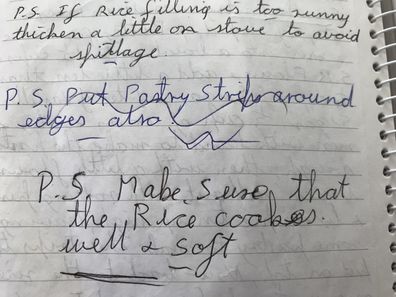 P.S. If Rice filling is too runny
thicken a little on stove to avoid
spillage
P.S. Put Pastry Strips around
edges also
P.S. Make Sure that
the Rice cooks.
well & Soft